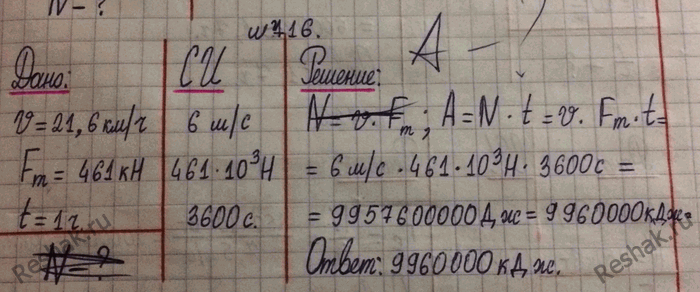 N - ?
№716.
A - ?
Дано:
v = 21,6 км/ч
Fт = 461 кН
t = 1 ч.
N - ?
СИ
6 м/с
461·10³Н
3600 с.
Решение:
N = v·Fт; A = N·t = v·Fт·t =
= 6 м/с · 461·10³Н · 3600 с =
= 9957600000 Дж = 9960000 кДж.
Ответ: 9960000 кДж.
Reshak.ru
Reshak.ru